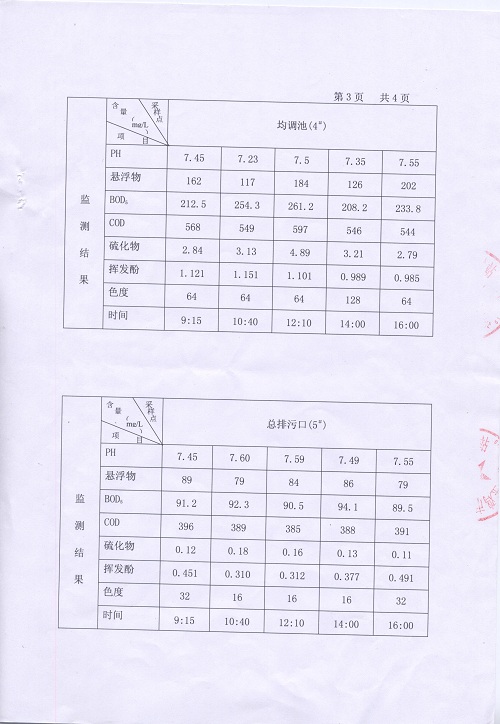 第3页 共4页
含量(mg/L) 采样点 项目 均调池(4#)
监测结果
PH 7.45 7.23 7.5 7.35 7.55
悬浮物 162 117 184 126 202
BOD₅ 212.5 254.3 261.2 208.2 233.8
COD 568 549 597 546 544
硫化物 2.84 3.13 4.89 3.21 2.79
挥发酚 1.121 1.151 1.101 0.989 0.985
色度 64 64 64 128 64
时间 9:15 10:40 12:10 14:00 16:00
含量(mg/L) 采样点 项目 总排污口(5#)
监测结果
PH 7.45 7.60 7.59 7.49 7.55
悬浮物 89 79 84 86 79
BOD₅ 91.2 92.3 90.5 94.1 89.5
COD 396 389 385 388 391
硫化物 0.12 0.18 0.16 0.13 0.11
挥发酚 0.451 0.310 0.312 0.377 0.491
色度 32 16 16 16 32
时间 9:15 10:40 12:10 14:00 16:00